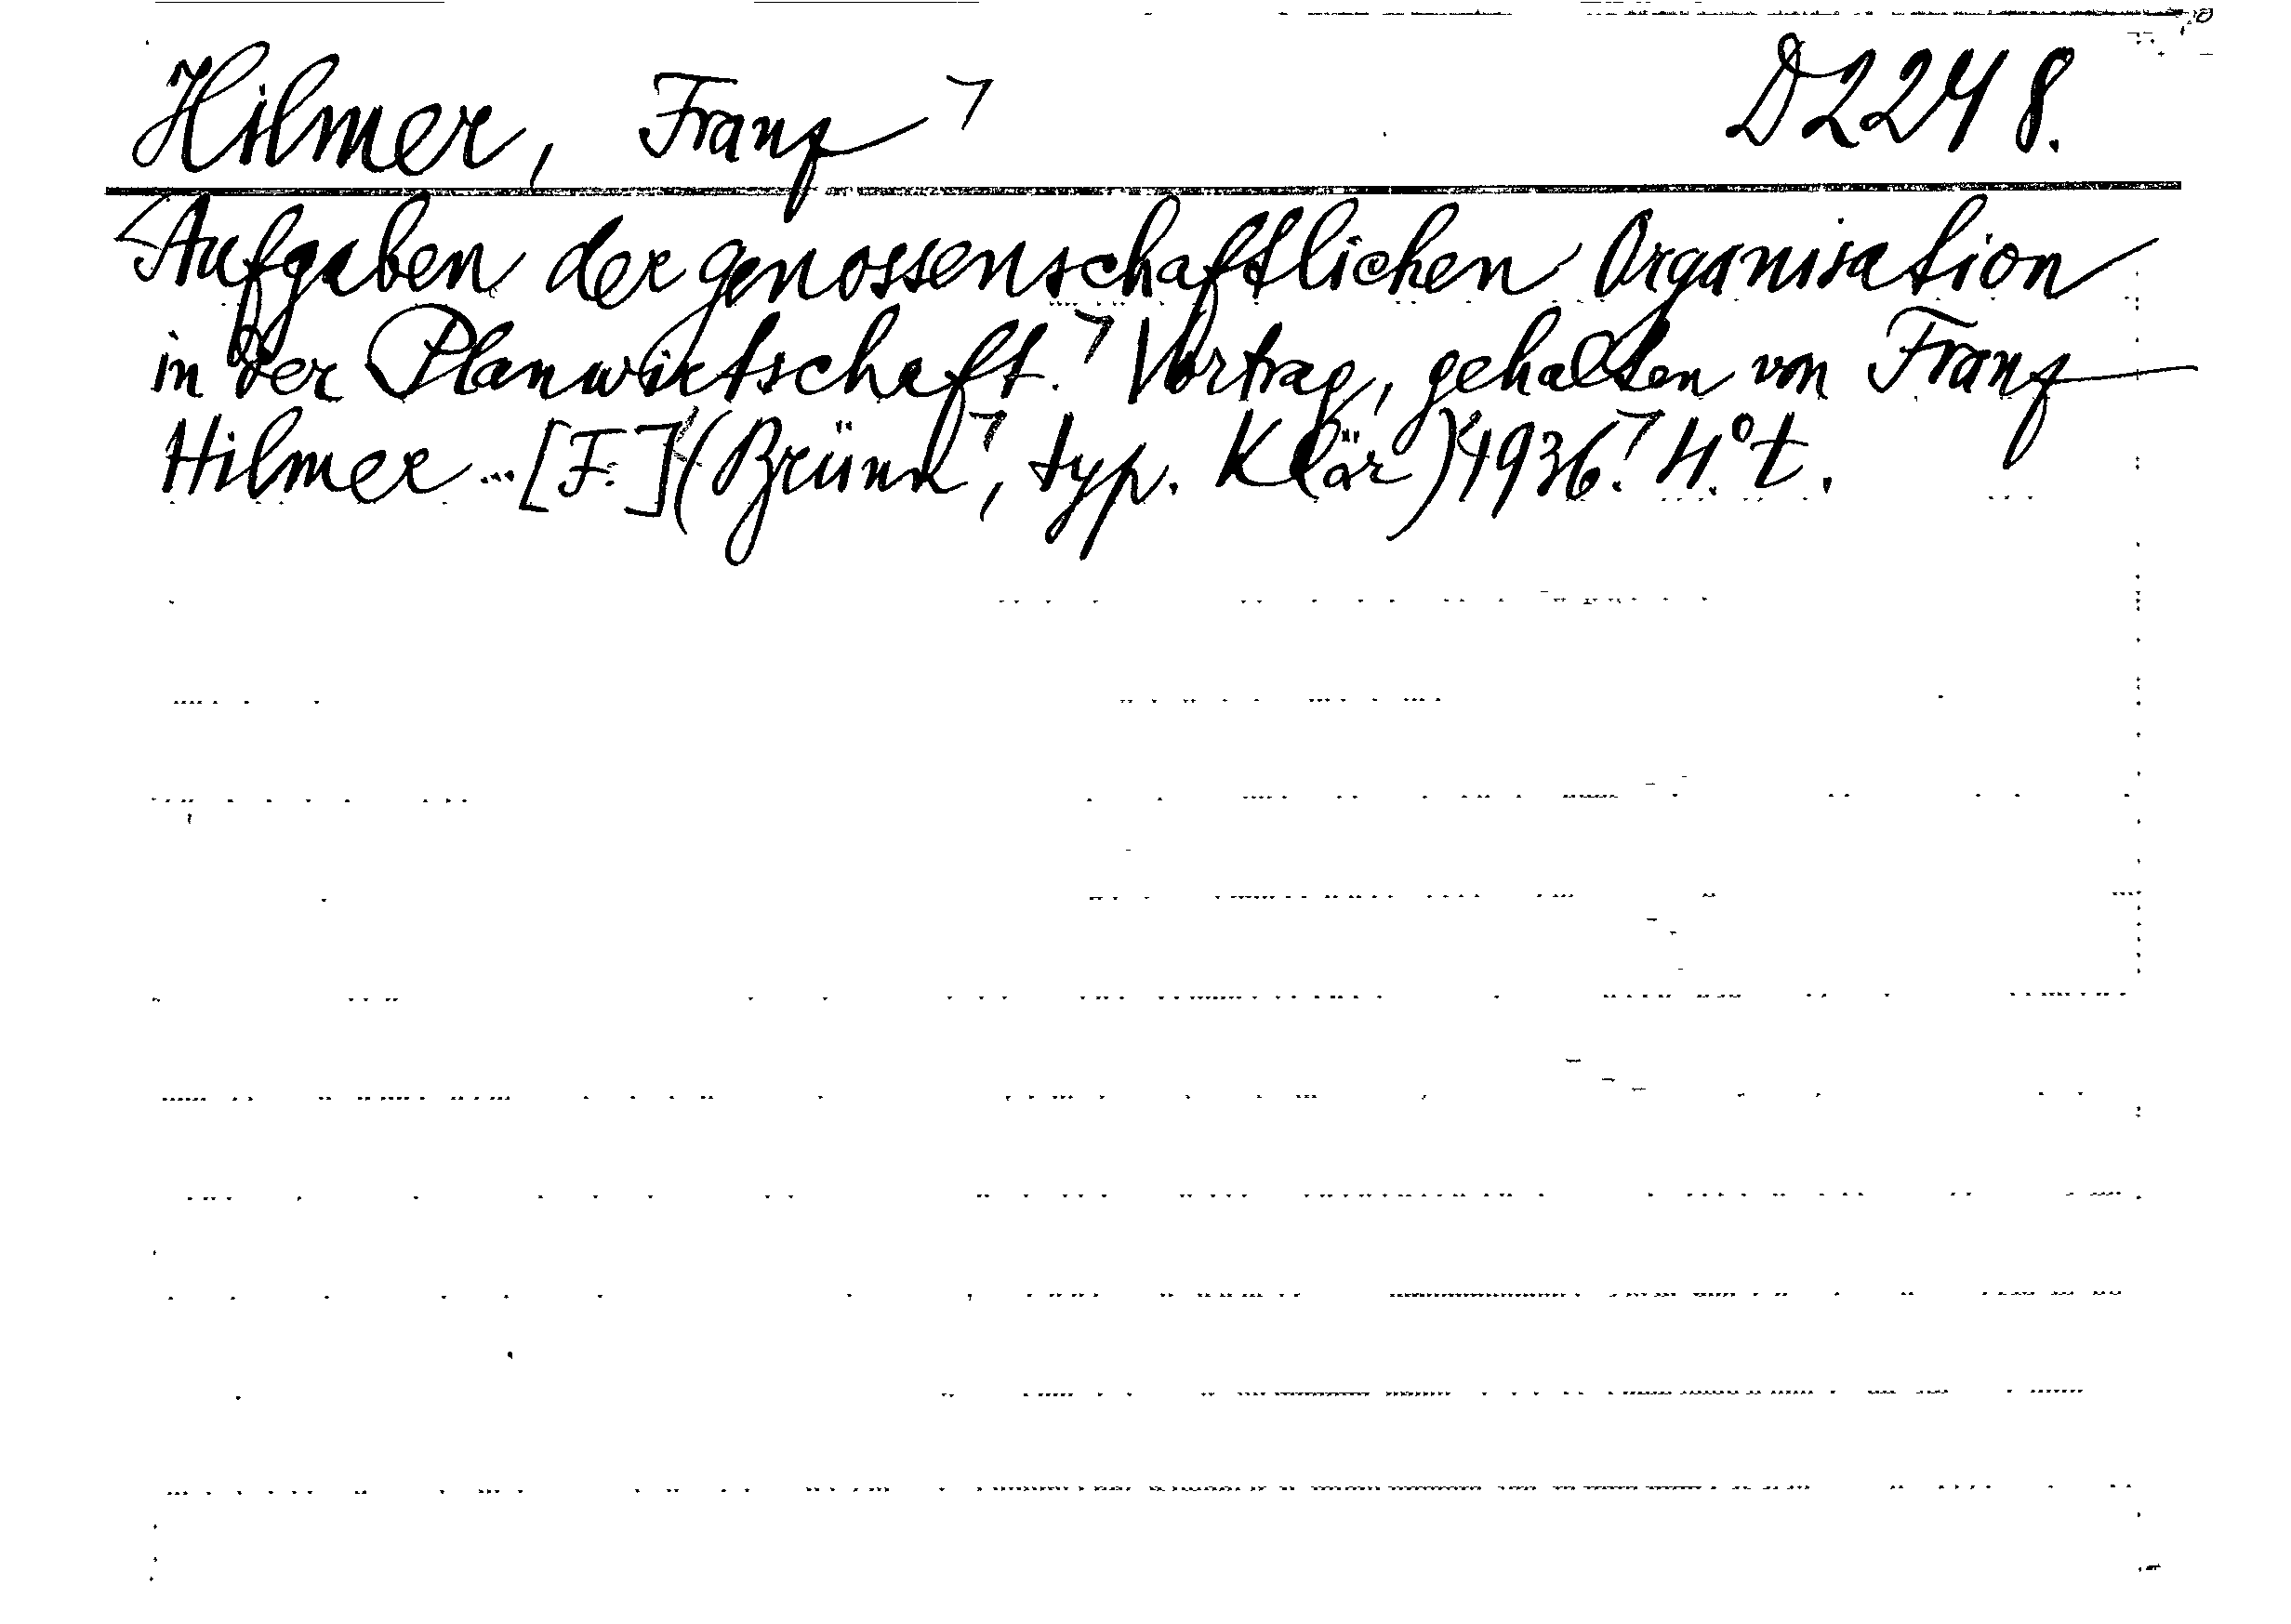 Hilmer, Franz ⌝ D 2248.
Aufgaben der genossenschaftlichen Organisation
in der Planwirtschaft.⌝ Vortrag, gehalten von Franz
Hilmer ... [F.] (Brünn⌝, typ. Klär) 1936.⌝ 4.° t.